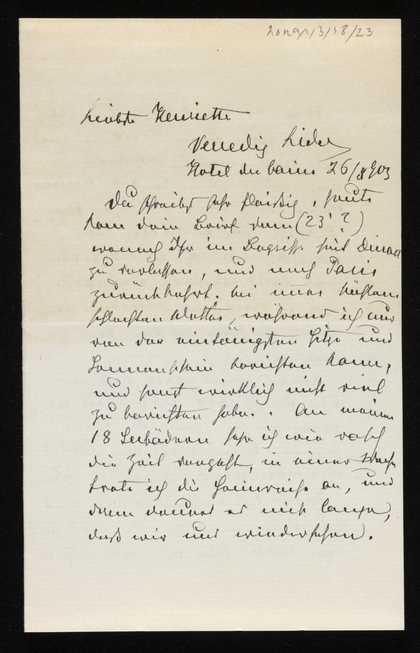 Liebste Henriette
Venedig Lido
Hotel des bains 26/8 903
Du schreibst sehr fleißig, heute
kam dein Brief vom (23' ?)
wonach Ihr im Begriffe seid Dinard
zu verlassen, und nach Paris
zurückkehrt. bei
schlechten Wetter, während ich nur
von der eintönigsten Hitze und
Sonnenschein berichten kann,
und sonst wirklich nicht viel
zu berichten habe. An meinen
18 Seebädern sehe ich wie rasch
die Zeit vergeht, in einer Woche
trete ich die Heimreise an, und
dann dauert es nicht lange,
daß wir uns wiedersehen.